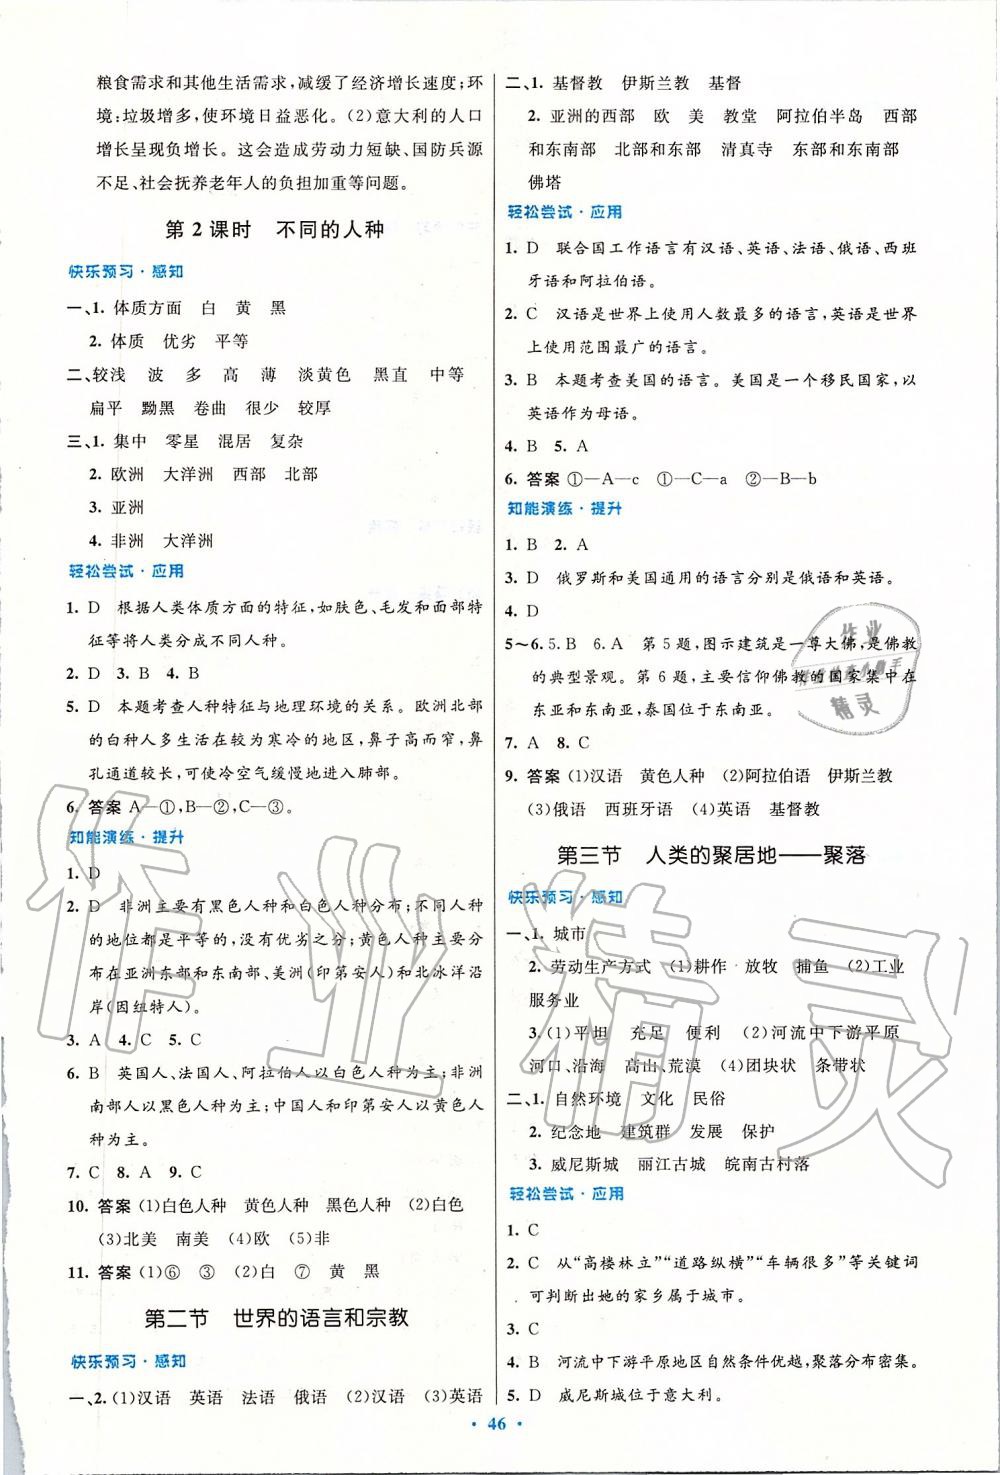 粮食需求和其他生活需求,减缓了经济增长速度;环
境:垃圾增多,使环境日益恶化。(2)意大利的人口
增长呈现负增长。这会造成劳动力短缺、国防兵源
不足、社会抚养老年人的负担加重等问题。
第2课时 不同的人种
快乐预习·感知
一、1. 体质方面 白 黄 黑
2. 体质 优劣 平等
二、较浅 波 多 高 薄 淡黄色 黑直 中等
扁平 黝黑 卷曲 很少 较厚
三、1. 集中 零星 混居 复杂
2. 欧洲 大洋洲 西部 北部
3. 亚洲
4. 非洲 大洋洲
轻松尝试·应用
1. D 根据人类体质方面的特征,如肤色、毛发和面部特
征等将人类分成不同人种。
2. D 3. B 4. B
5. D 本题考查人种特征与地理环境的关系。欧洲北部
的白种人多生活在较为寒冷的地区,鼻子高而窄,鼻
孔通道较长,可使冷空气缓慢地进入肺部。
6. 答案 A—①,B—②,C—③。
知能演练·提升
1. D
2. D 非洲主要有黑色人种和白色人种分布;不同人种
的地位都是平等的,没有优劣之分;黄色人种主要分
布在亚洲东部和东南部、美洲(印第安人)和北冰洋沿
岸(因纽特人)。
3. A 4. C 5. C
6. B 英国人、法国人、阿拉伯人以白色人种为主;非洲
南部人以黑色人种为主;中国人和印第安人以黄色人
种为主。
7. C 8. A 9. C
10. 答案 (1)白色人种 黄色人种 黑色人种 (2)白色
(3)北美 南美 (4)欧 (5)非
11. 答案 (1)⑥ ③ (2)白 ⑦ 黄 黑
第二节 世界的语言和宗教
快乐预习·感知
一、2. (1)汉语 英语 法语 俄语 (2)汉语 (3)英语
二、1. 基督教 伊斯兰教 基督
2. 亚洲的西部 欧 美 教堂 阿拉伯半岛 西部
和东南部 北部和东部 清真寺 东部和东南部
佛塔
轻松尝试·应用
1. D 联合国工作语言有汉语、英语、法语、俄语、西班
牙语和阿拉伯语。
2. C 汉语是世界上使用人数最多的语言,英语是世界
上使用范围最广的语言。
3. B 本题考查美国的语言。美国是一个移民国家,以
英语作为母语。
4. B 5. A
6. 答案 ①—A—c ①—C—a ②—B—b
知能演练·提升
1. B 2. A
3. D 俄罗斯和美国通用的语言分别是俄语和英语。
4. D
5~6. 5. B 6. A 第5题,图示建筑是一尊大佛,是佛教
的典型景观。第6题,主要信仰佛教的国家集中在
东亚和东南亚,泰国位于东南亚。
7. A 8. C
9. 答案 (1)汉语 黄色人种 (2)阿拉伯语 伊斯兰教
(3)俄语 西班牙语 (4)英语 基督教
第三节 人类的聚居地——聚落
快乐预习·感知
一、1. 城市
2. 劳动生产方式 (1)耕作 放牧 捕鱼 (2)工业
服务业
3. (1)平坦 充足 便利 (2)河流中下游平原
河口、沿海 高山、荒漠 (4)团块状 条带状
二、1. 自然环境 文化 民俗
2. 纪念地 建筑群 发展 保护
3. 威尼斯城 丽江古城 皖南古村落
轻松尝试·应用
1. C
2. C 从“高楼林立”“道路纵横”“车辆很多”等关键词
可判断出她的家乡属于城市。
3. C
4. B 河流中下游平原地区自然条件优越,聚落分布密集。
5. D 威尼斯城位于意大利。
· 46 ·
作业精灵
作业
精灵